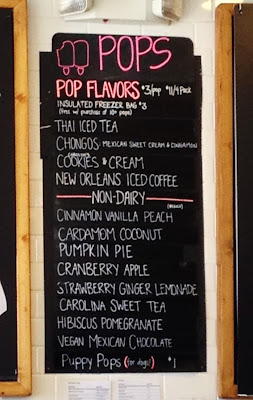 POPS
POP FLAVORS $3/pop $11/4 Pack
INSULATED FREEZER BAG $3
(free w/ purchase of 10+ pops)
THAI ICED TEA
CHONGOS - MEXICAN SWEET CREAM & CINNAMON
COOKIES & CREAM
NEW ORLEANS ICED COFFEE
NON-DAIRY
CINNAMON VANILLA PEACH
CARDAMOM COCONUT
PUMPKIN PIE
CRANBERRY APPLE
STRAWBERRY GINGER LEMONADE
CAROLINA SWEET TEA
HIBISCUS POMEGRANATE
VEGAN MEXICAN CHOCOLATE
PUPPY POPS (for dogs!) $1